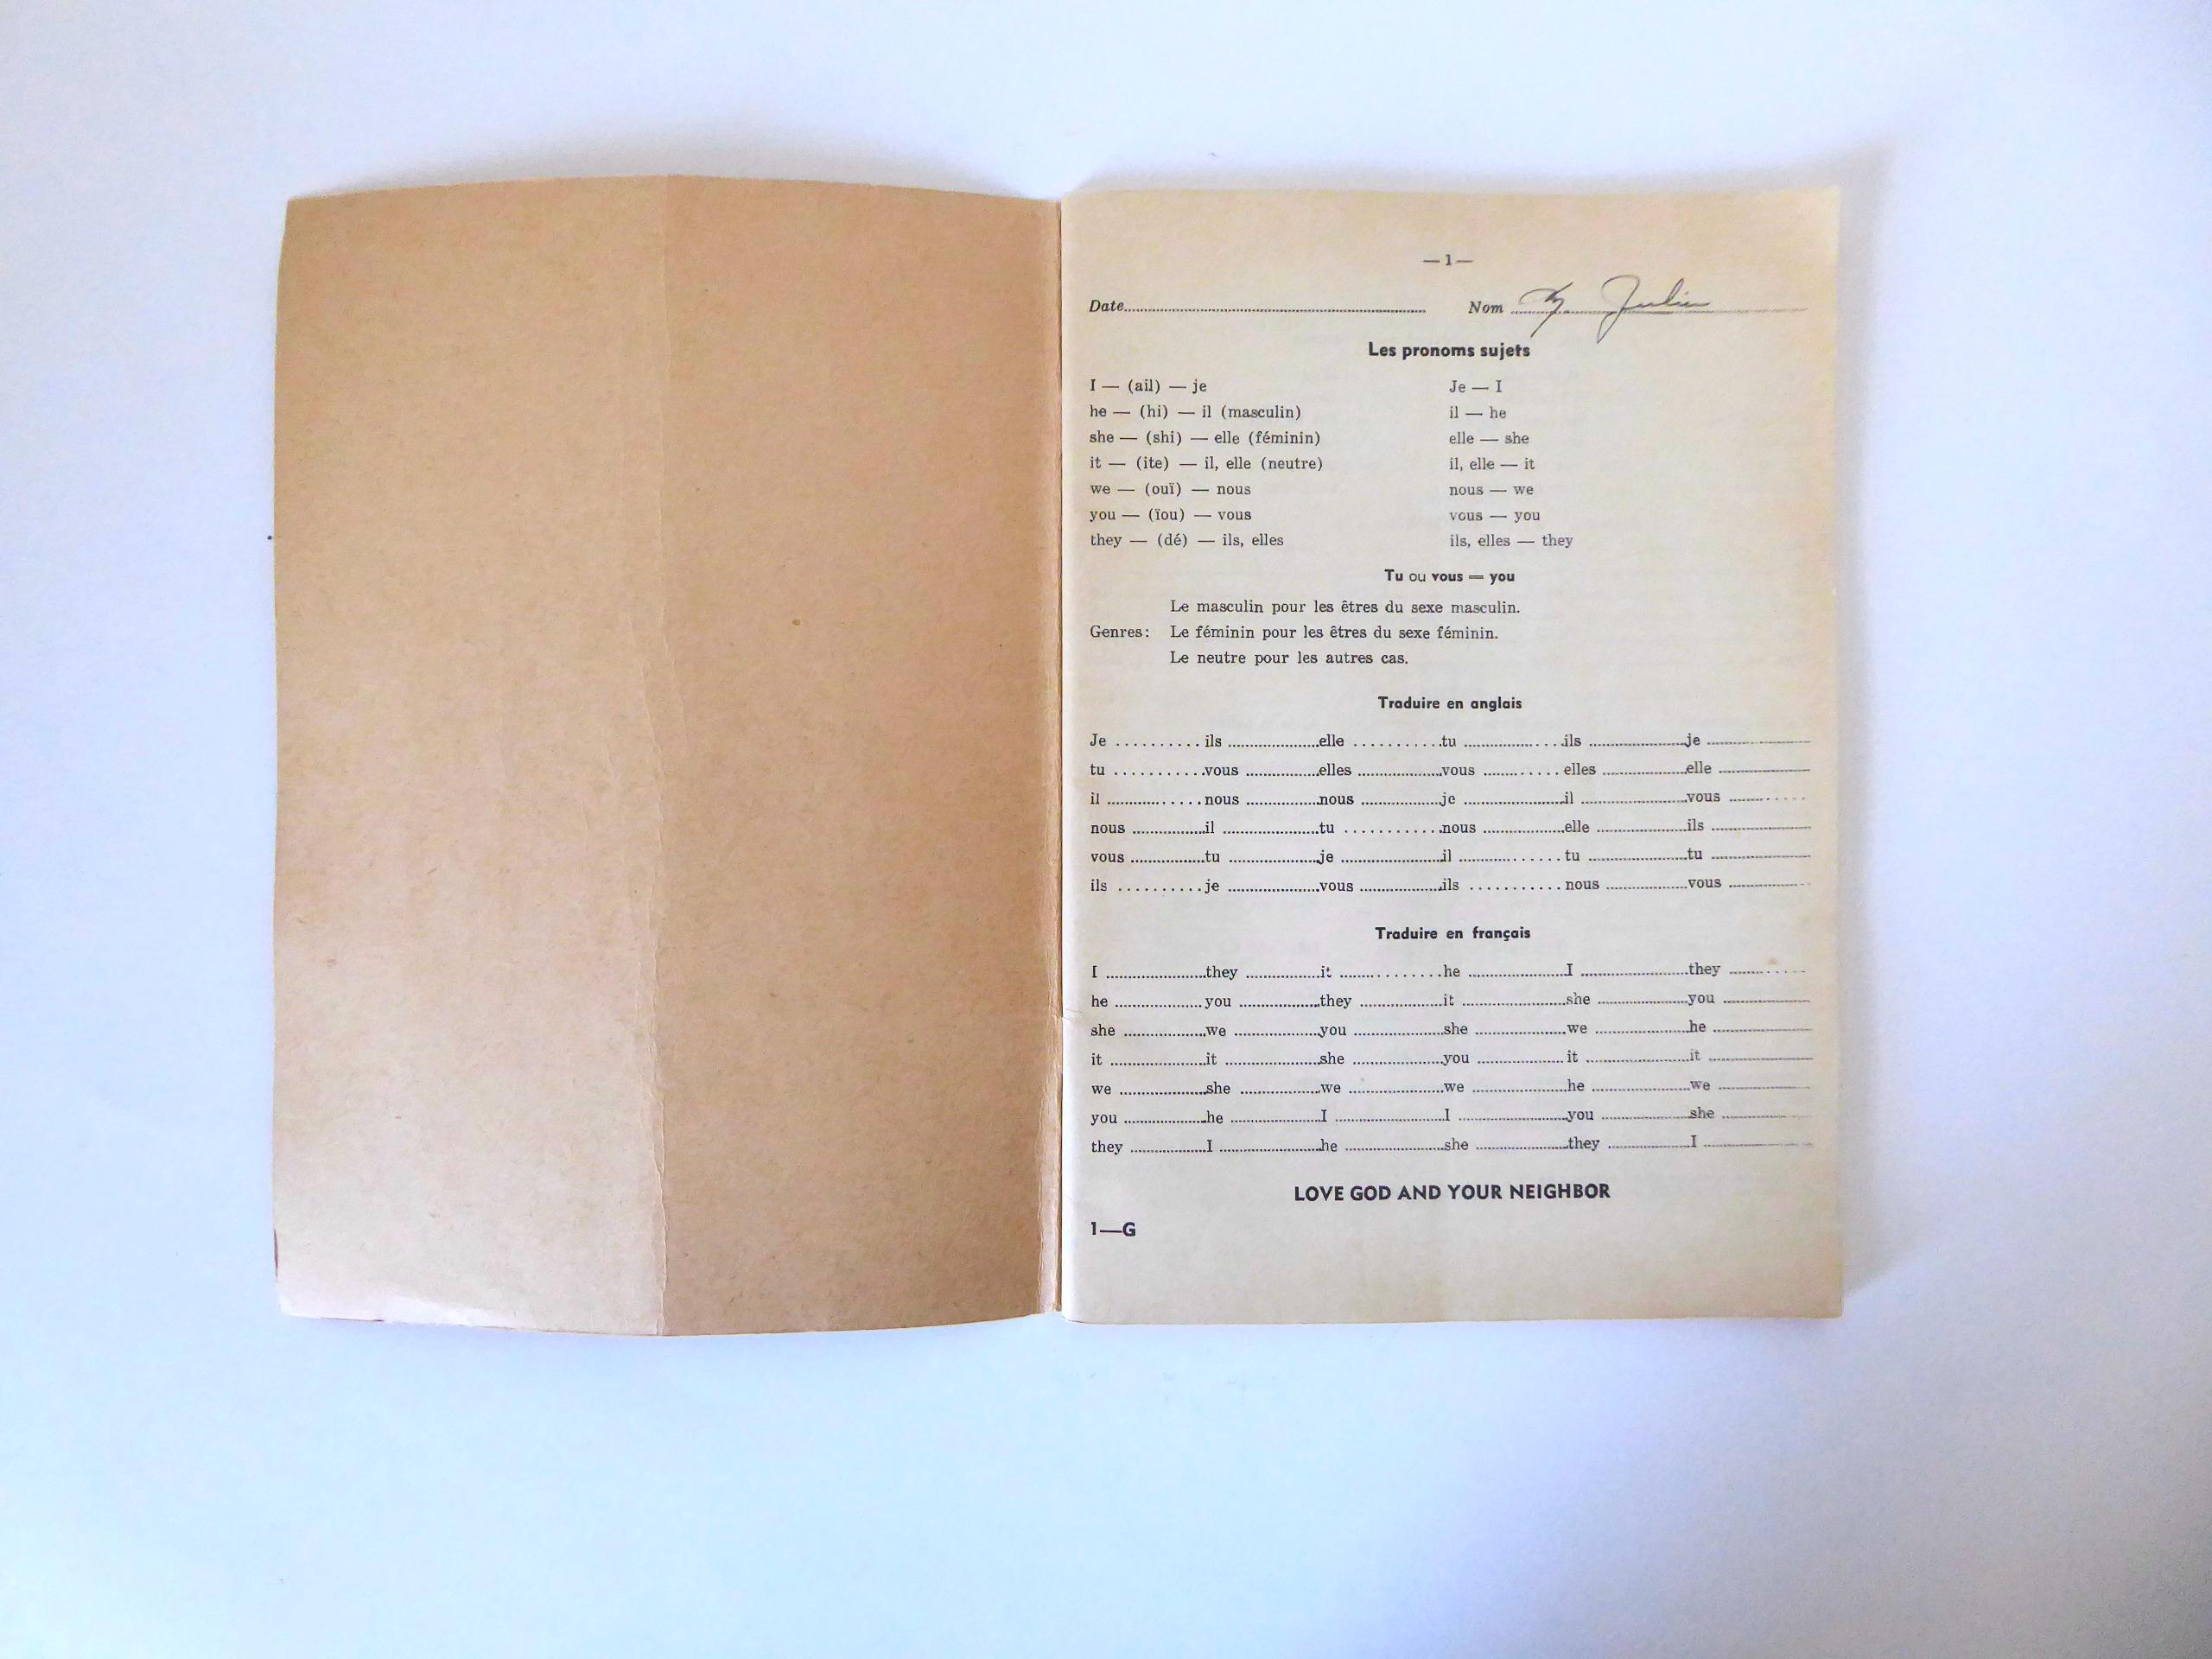 —1—
Date........................ Nom ........................
Les pronoms sujets
I — (ail) — je Je — I
he — (hi) — il (masculin) il — he
she — (shi) — elle (féminin) elle — she
it — (ite) — il, elle (neutre) il, elle — it
we — (ouï) — nous nous — we
you — (ïou) — vous vous — you
they — (dé) — ils, elles ils, elles — they
Tu ou vous — you
Le masculin pour les êtres du sexe masculin.
Genres: Le féminin pour les êtres du sexe féminin.
Le neutre pour les autres cas.
Traduire en anglais
Je .......... ils .......... elle .......... tu .......... ils .......... je ..........
tu .......... vous .......... elles .......... vous .......... elles .......... elle ..........
il .......... nous .......... nous .......... je .......... il .......... vous ..........
nous .......... il .......... tu .......... nous .......... elle .......... ils ..........
vous .......... tu .......... je .......... il .......... tu .......... tu ..........
ils .......... je .......... vous .......... ils .......... nous .......... vous ..........
Traduire en français
I .......... they .......... it .......... he .......... I .......... they ..........
he .......... you .......... they .......... it .......... she .......... you ..........
she .......... we .......... you .......... she .......... we .......... he ..........
it .......... it .......... she .......... you .......... it .......... it ..........
we .......... she .......... we .......... we .......... he .......... we ..........
you .......... he .......... I .......... I .......... you .......... she ..........
they .......... I .......... he .......... she .......... they .......... I ..........
LOVE GOD AND YOUR NEIGHBOR
1—G